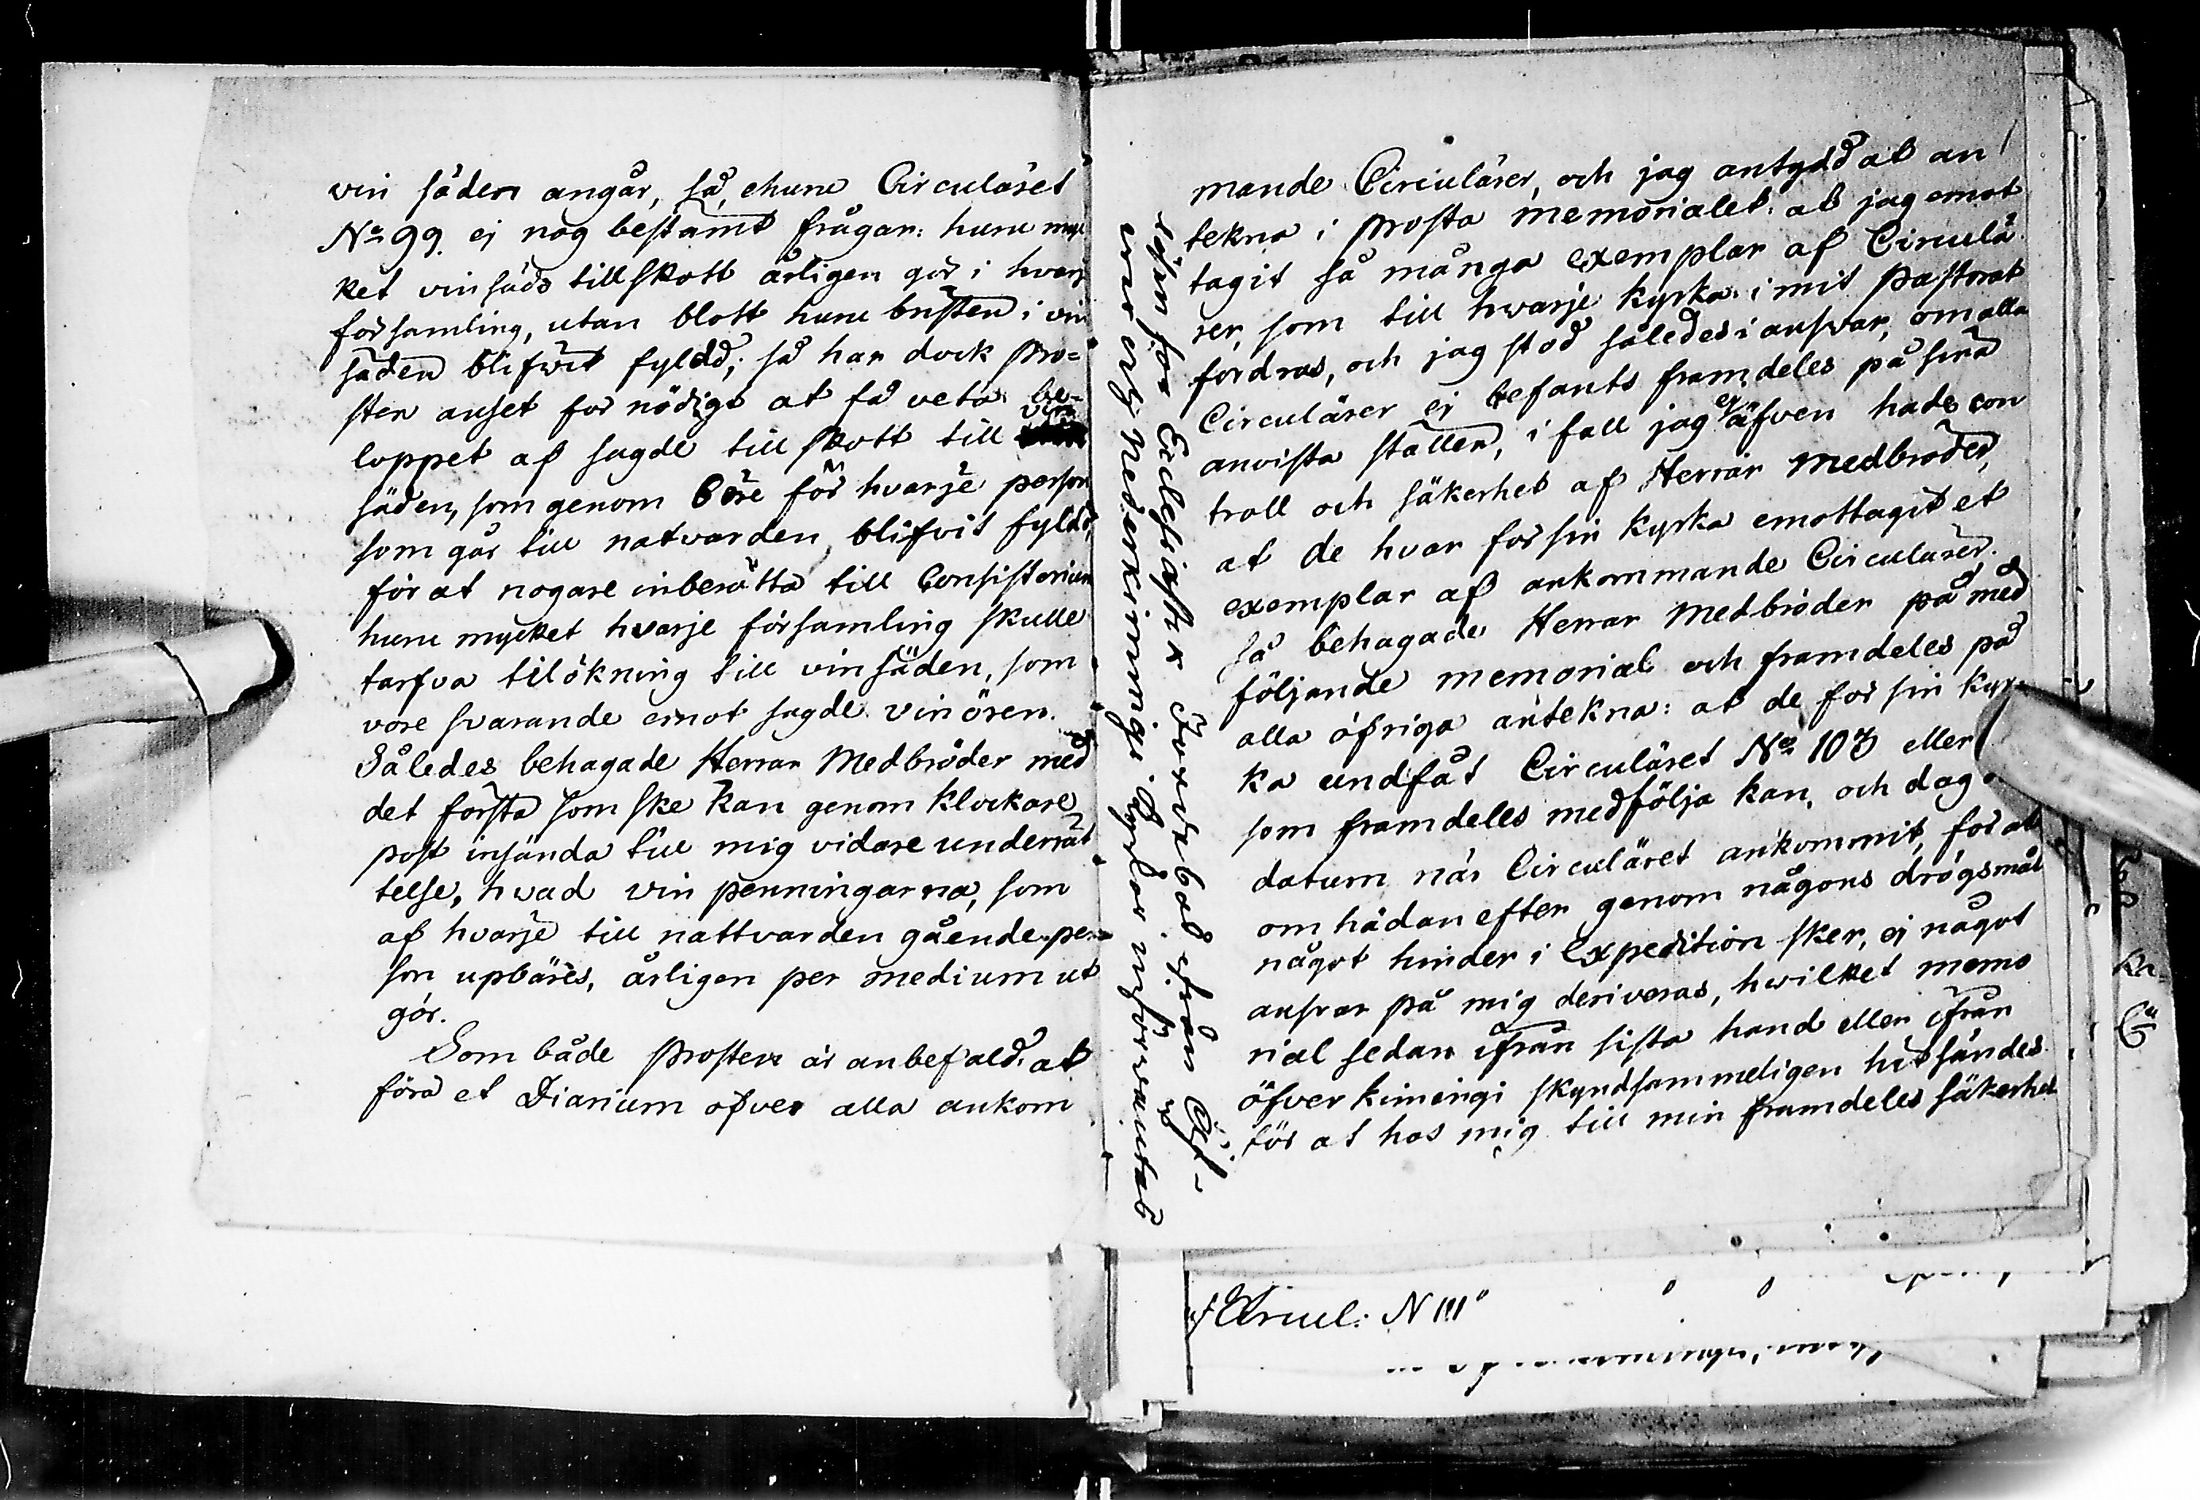 vin säden angår, så, ehuru Circuläret
No 99. ej nog bestämt frågar: huru myc
ket vinsäds tillskott årligen gör i hvarj
församling, utan blott huru bristen i vin
säden blifwit fyldd; så har dock Pro=
sten anset for nödigt at få veta: be-
loppet af sagde till skott till vin
säden, som genom 6 öre för hvarje person
som går till natvarden, blifvit fyldt,
för at nogare inberätta till Consistorium
huru mycket hvarje församling skulle
tarfva tilökning till vinsäden, som
vore svarande emot sagde vinören.
Således behagade Herrar Medbröder med
det första som ske kan genom klockare
post insända till mig vidare underrät
telse, hwad vin penningarna, som
af hvarje till nattvarden gående per-
son upbäres, årligen per medium ut
gör.
Som både Prosten är anbefald: at
föra et Diarium öfver alla ankom
mande Circulärer, och jag antydd at an
tekna i Prosta memorialet: at jag emot
tagit så många exemplar af Circulä
rer, som till hwarje kyrka i mit Pastorat
fordras, och jag stod således i ansvar, om alla
Circulärer ej befants framdeles på sina
anvista ställen, i fall jag ej äfven hade con
troll och säkerhet af Herrar Medbröder,
at de hvar för sin kyrka emottagit et
exemplar af ankommande Circulärer.
så behagade Herrar Medbröder på med
följande memorial och framdeles på
alla öfriga antekna: at de for sin kyr
ka undfåt Circuläret No 103 eller
som framdeles medfölja kan, och dag
datum när Circuläret ankommit, for at
om hädan efter genom någons drögsmål
något hinder i Expedition sker, ej något
ansvar på mig deriveras, hwilket memo
rial sedan ifrån sista hand eller ifrån
öfver kimingi skyndsammeligen hitsändes
för at hos mig till min framdeles säkerhet
Circul: N 111